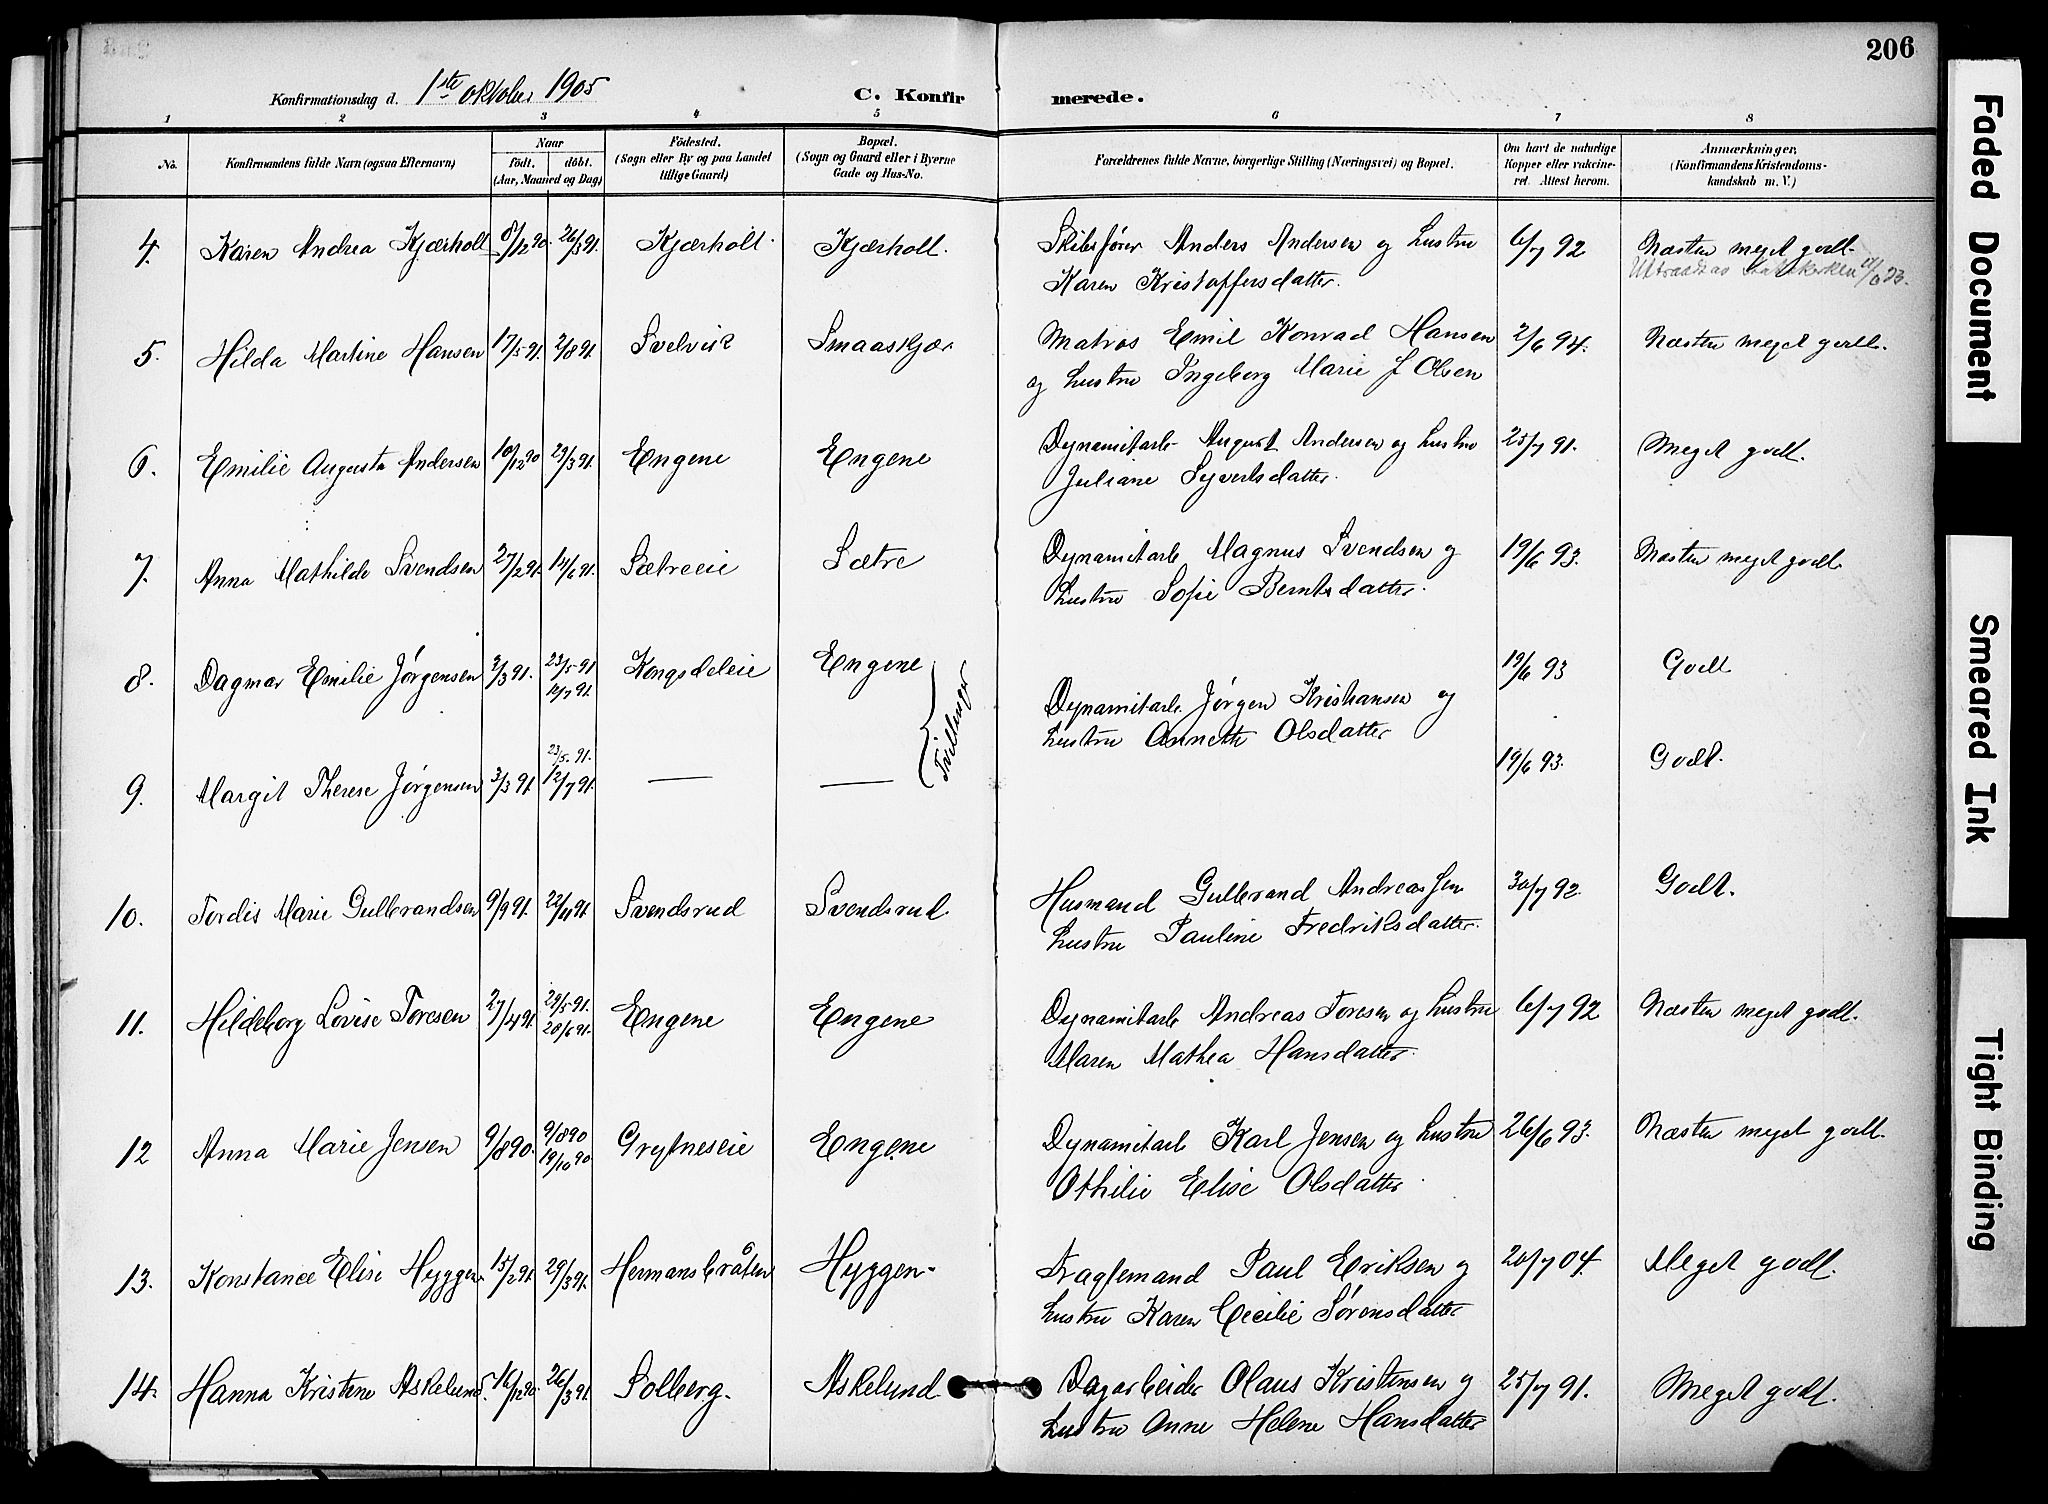 206
Konfirmationsdag d. 1ste oktober 1905 C. Konfirmerede.
1 2 3 4 5 6 7 8
No. Konfirmandens fulde Navn (ogsaa Efternavn) Naar födt. döbt. (Aar, Maaned og Dag) Födested. (Sogn eller By og paa Landet tillige Gaard) Bopæl. (Sogn og Gaard eller i Byerne Gade og Hus-No. Forældrenes fulde Navne, borgerlige Stilling (Næringsvei) og Bopæl. Om havt de naturlige Kopper eller vakcineret. Attest herom. Anmærkninger, (Konfirmandens Kristendomskundskab m. V.)
4. Karen Andrea Kjærholt 8/12 90. 26/3 91. Kjærholt. Kjærholt. Skibsfører Anders Andersen og hustru 6/7 92 Næsten meget godt.
Karen Kristoffersdatter. Udtraadt av Statskirken /6 23.
5. Hilda Martine Hansen 17/5 91. 2/8 91. Svelvik Smaaskjær Matros Emil Konrad Hansen 2/6 94. Næsten meget godt.
og hustru Ingeborg Marie f Olsen
6. Emilie Augusta Andersen 10/12 90 29/3 91. Engene Engene Dynamitarb August Andersen og hustru 25/7 91. Meget godt.
Juliane Syvertsdatter.
7. Anna Mathilde Svendsen 27/2 91. 14/6 91. Sætreeie Sætre Dynamitarb Magnus Svendsen og 19/6 93. Næsten meget godt.
hustru Sofie Berntsdatter.
8. Dagmar Emilie Jørgensen 3/3 91. 23/5 91 12/7 91. Kongsdeleie Engene 19/6 93 Godt
Tvillinger
Dynamitarb. Jørgen Kristiansen og
hustru Annette Olsdatter
9. Margit Therese Jørgensen 3/3 91. 23/5 91. 12/7 91. — — 19/6 93. Godt.
10. Tordis Marie Gulbrandsen 9/9 91. 22/11 91. Svendsrud Svendsrud Husmand Gulbrand Andreassen 30/7 92. Godt.
hustru Pauline Fredriksdatter.
11. Hildeborg Lovise Toresen 27/4 91. 29/5 91. 20/6 91. Engene Engene Dynamitarb Andreas Toresen og hustru 6/7 92 Næsten meget godt.
Maren Mathea Hansdatter.
12 Anna Marie Jensen 9/8 90. 9/8 90 19/10 90 Grytneseie Engene Dynamitarb Karl Jensen og hustru 26/6 93. Næsten meget godt.
Othilie Elise Olsdatter
13. Konstance Elise Hyggen 15/2 91. 29/3 91. Hermansbråten Hyggen. Fragtemand Paul Eriksen og 20/7 04. Meget godt.
hustru Karen Cecilie Sørensdatter
14. Hanna Kristine Askelund. 16/12 90. 26/3 91 Solberg. Askelund Dagarbeider Olaus Kristensen og 25/7 91. Meget godt.
hustru Anne Helene Hansdatter
Faded Document
Smeared Ink
Tight Binding